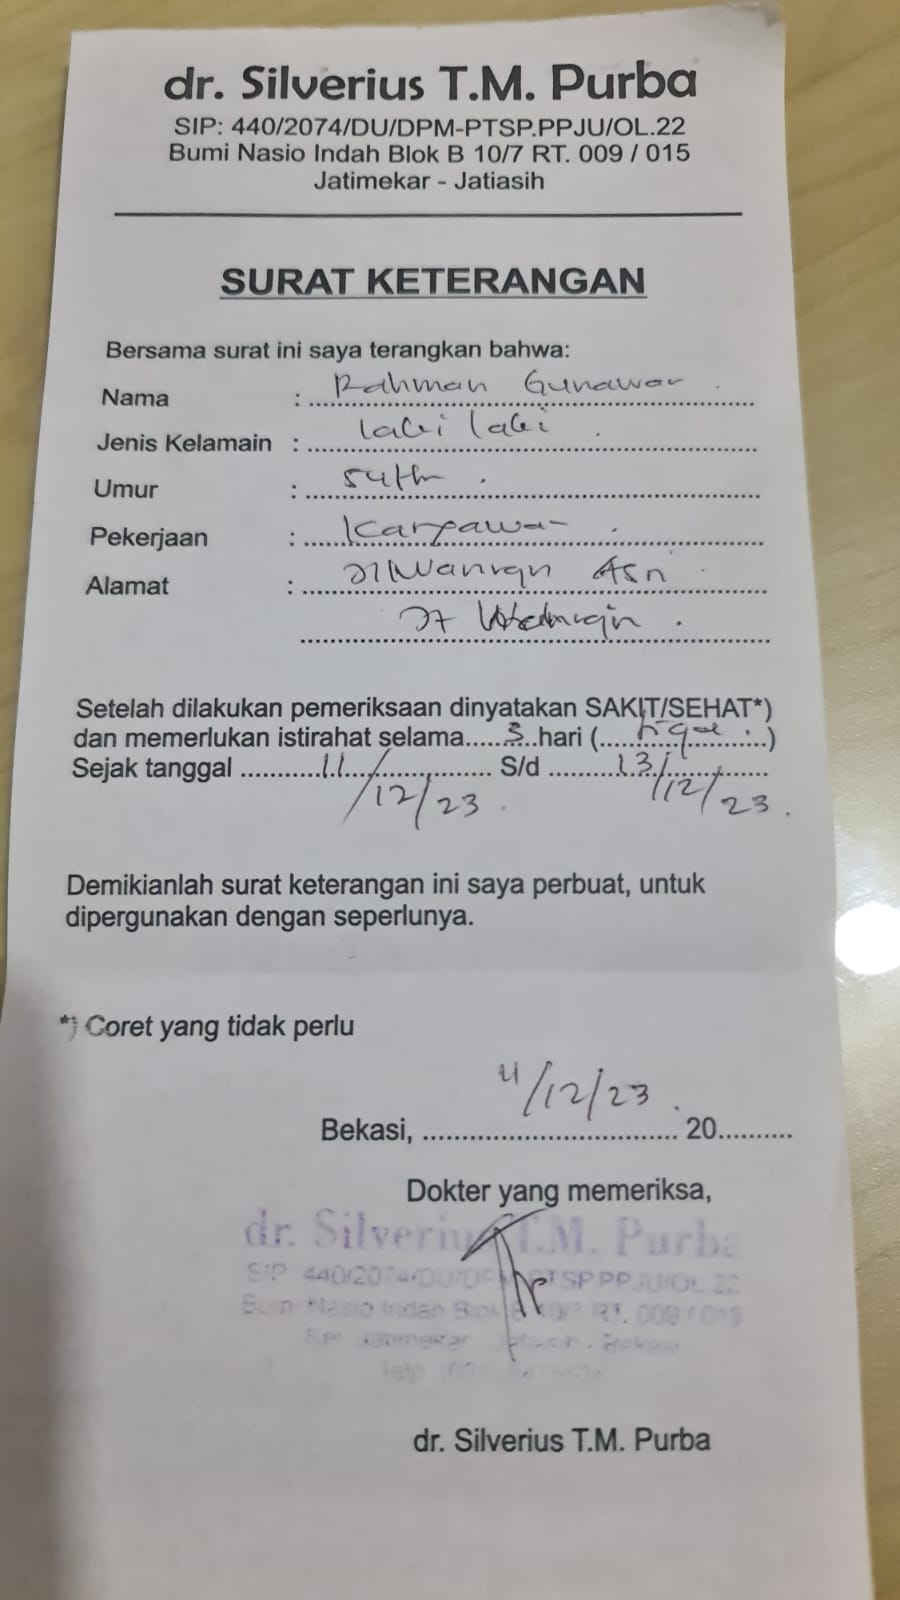 dr. Silverius T.M. Purba
SIP: 440/2074/DU/DPM-PTSP.PPJU/OL.22
Bumi Nasio Indah Blok B 10/7 RT. 009 / 015
Jatimekar - Jatiasih
SURAT KETERANGAN
Bersama surat ini saya terangkan bahwa:
Nama : Rahman Gunawan
Jenis Kelamain : laki laki
Umur : 54th
Pekerjaan : Karyawan
Alamat :
Setelah dilakukan pemeriksaan dinyatakan SAKIT/SEHAT*)
dan memerlukan istirahat selama.....3..hari (....tiga....)
Sejak tanggal 11/12/23 S/d 13/12/23
Demikianlah surat keterangan ini saya perbuat, untuk
dipergunakan dengan seperlunya.
*) Coret yang tidak perlu
Bekasi, 11/12/23 20..........
Dokter yang memeriksa,
dr. Silverius T.M. Purba
SIP 440/2074/DU/DPM-PTSP.PPJU/OL.22
Bumi Nasio Indah Blok B 10/7 RT. 009 / 015
dr. Silverius T.M. Purba